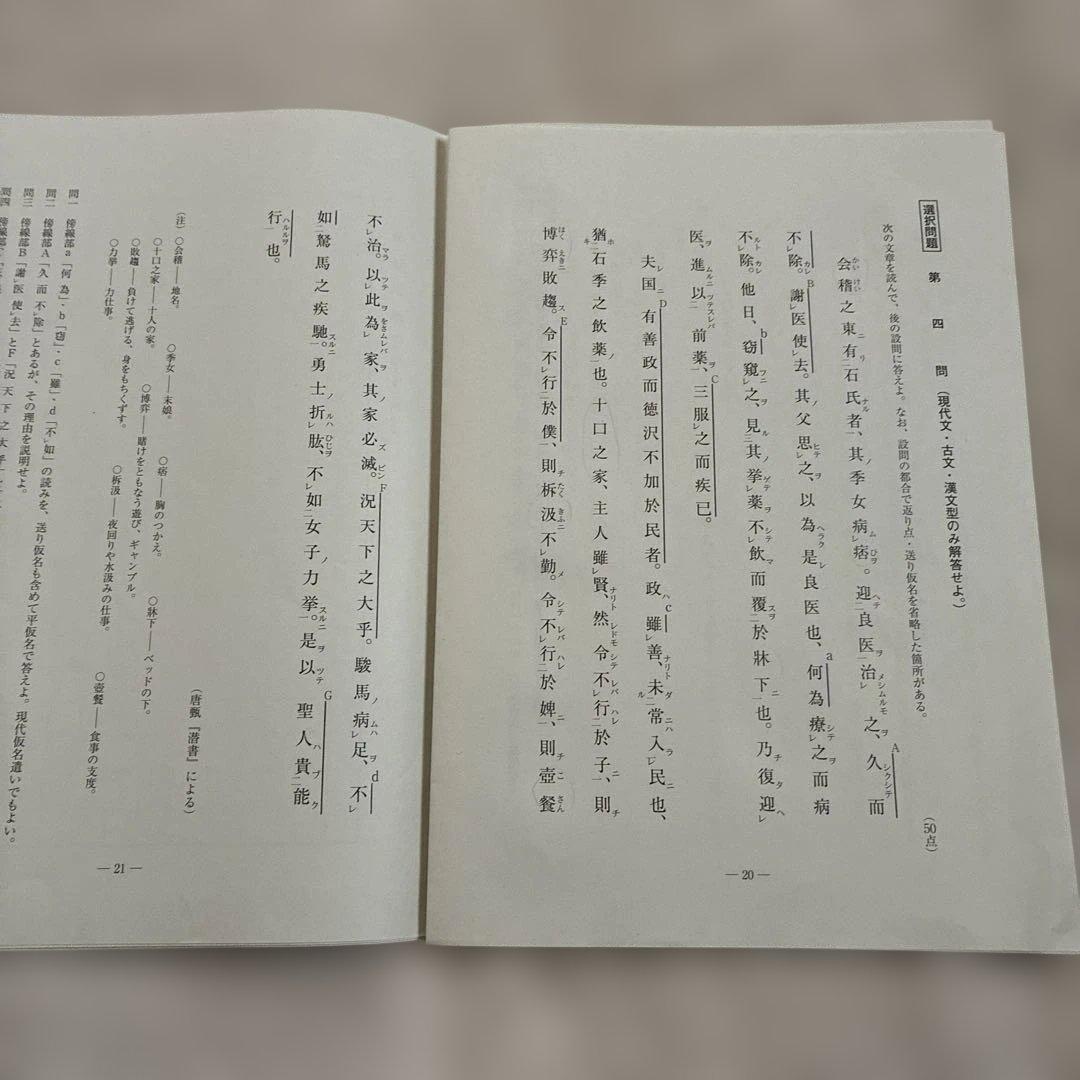 選択問題　第四問（現代文・古文・漢文型のみ解答せよ。）
次の文章を読んで、後の設問に答えよ。なお、設問の都合で返り点・送り仮名を省略した箇所がある。
（50点）
会稽之東有石氏者、其季女病痞。迎良医治之、久而
不除。謝医使去。其父思之、以為是良医也、何為療之而病
不除。他日、窃窺之、見其挙薬不飲而覆於牀下也。乃復迎
医、進以前薬、三服之而疾已。
夫国有善政而徳沢不加於民者。政雖善、未常入民也、
猶石季之飲薬也。十口之家、主人雖賢、然令不行於子、則
博弈敗趨。令不行於僕、則柝汲不勤。令不行於婢、則壺餐
— 20 —
不治。以此為家、其家必滅。況天下之大乎。駿馬病足、不
如駑馬之疾馳。勇士折肱、不如女子力挙。是以聖人貴能
行也。
（唐甄『潜書』による）
（注）○会稽——地名。　○季女——末娘。　○痞——胸のつかえ。　○牀下——ベッドの下。
○十口之家——十人の家。　○博弈——賭けをともなう遊び、ギャンブル。
○敗趨——負けて逃げる、身をもちくずす。　○柝汲——夜回りや水汲みの仕事。　○壺餐——食事の支度。
○力挙——力仕事。
問一　傍線部a「何為」・b「窃」・c「雖」・d「不如」の読みを、送り仮名も含めて平仮名で答えよ。現代仮名遣いでもよい。
問二　傍線部A「久而不除」とあるが、その理由を説明せよ。
問三　傍線部B「謝医使去」とF「況天下之大乎」
— 21 —